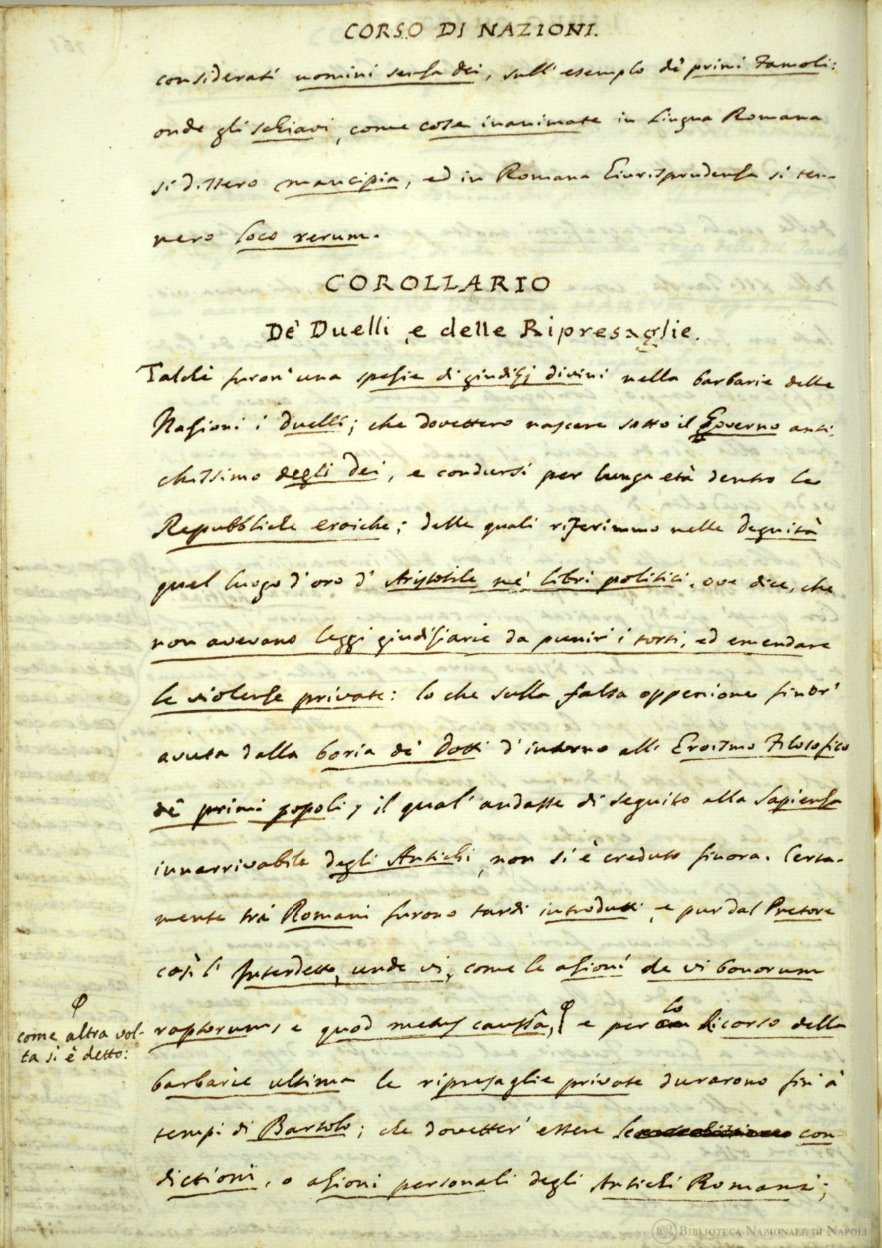 CORSO DI NAZIONI.
considerati uomini senza dei, sull'esemplo de' primi Famoli:
onde gli schiavi, come cose inanimate in Lingua Romana
si dissero mancipia, ed in Romana Giurisprudenza si ten-
nero loco rerum.
COROLLARIO
De' Duelli, e delle Ripresaglie.
Talchè furon' una spezie di giudizj divini nella barbarie delle
Nazioni i Duelli; che dovettero nascere sotto il Governo anti-
chissimo degli Dei, e condursi per lunga età dentro le
Repubbliche eroiche; delle quali riferimmo nelle degnità
quel luogo d'oro d'Aristotile ne' libri politici, ove dice, che
non avevano leggi giudiziarie da punir' i torti, ed emendare
le violenze private: lo che sulla falsa oppenione finor'
avuta dalla boria de' Dotti d'intorno all'Eroismo Filosofico
de' primi popoli, il qual' andasse di seguito alla Sapienza
innarrivabile degli Antichi, non si è creduto finora. Certa-
mente tra' Romani furono tardi introdutti, e pur dal Pretore
così l'Interdetto, unde vi, come le azioni de vi bonorum
raptorum, e quod metus caussa, φ e per lo Ricorso della
φ
come altra vol-
ta si è detto:
barbarie ultima le ripresaglie private durarono fin' a'
tempi di Bartolo; che dovetter' essere con
dictioni, o azioni personali degli Antichi Romani;
BIBLIOTECA NAZIONALE DI NAPOLI